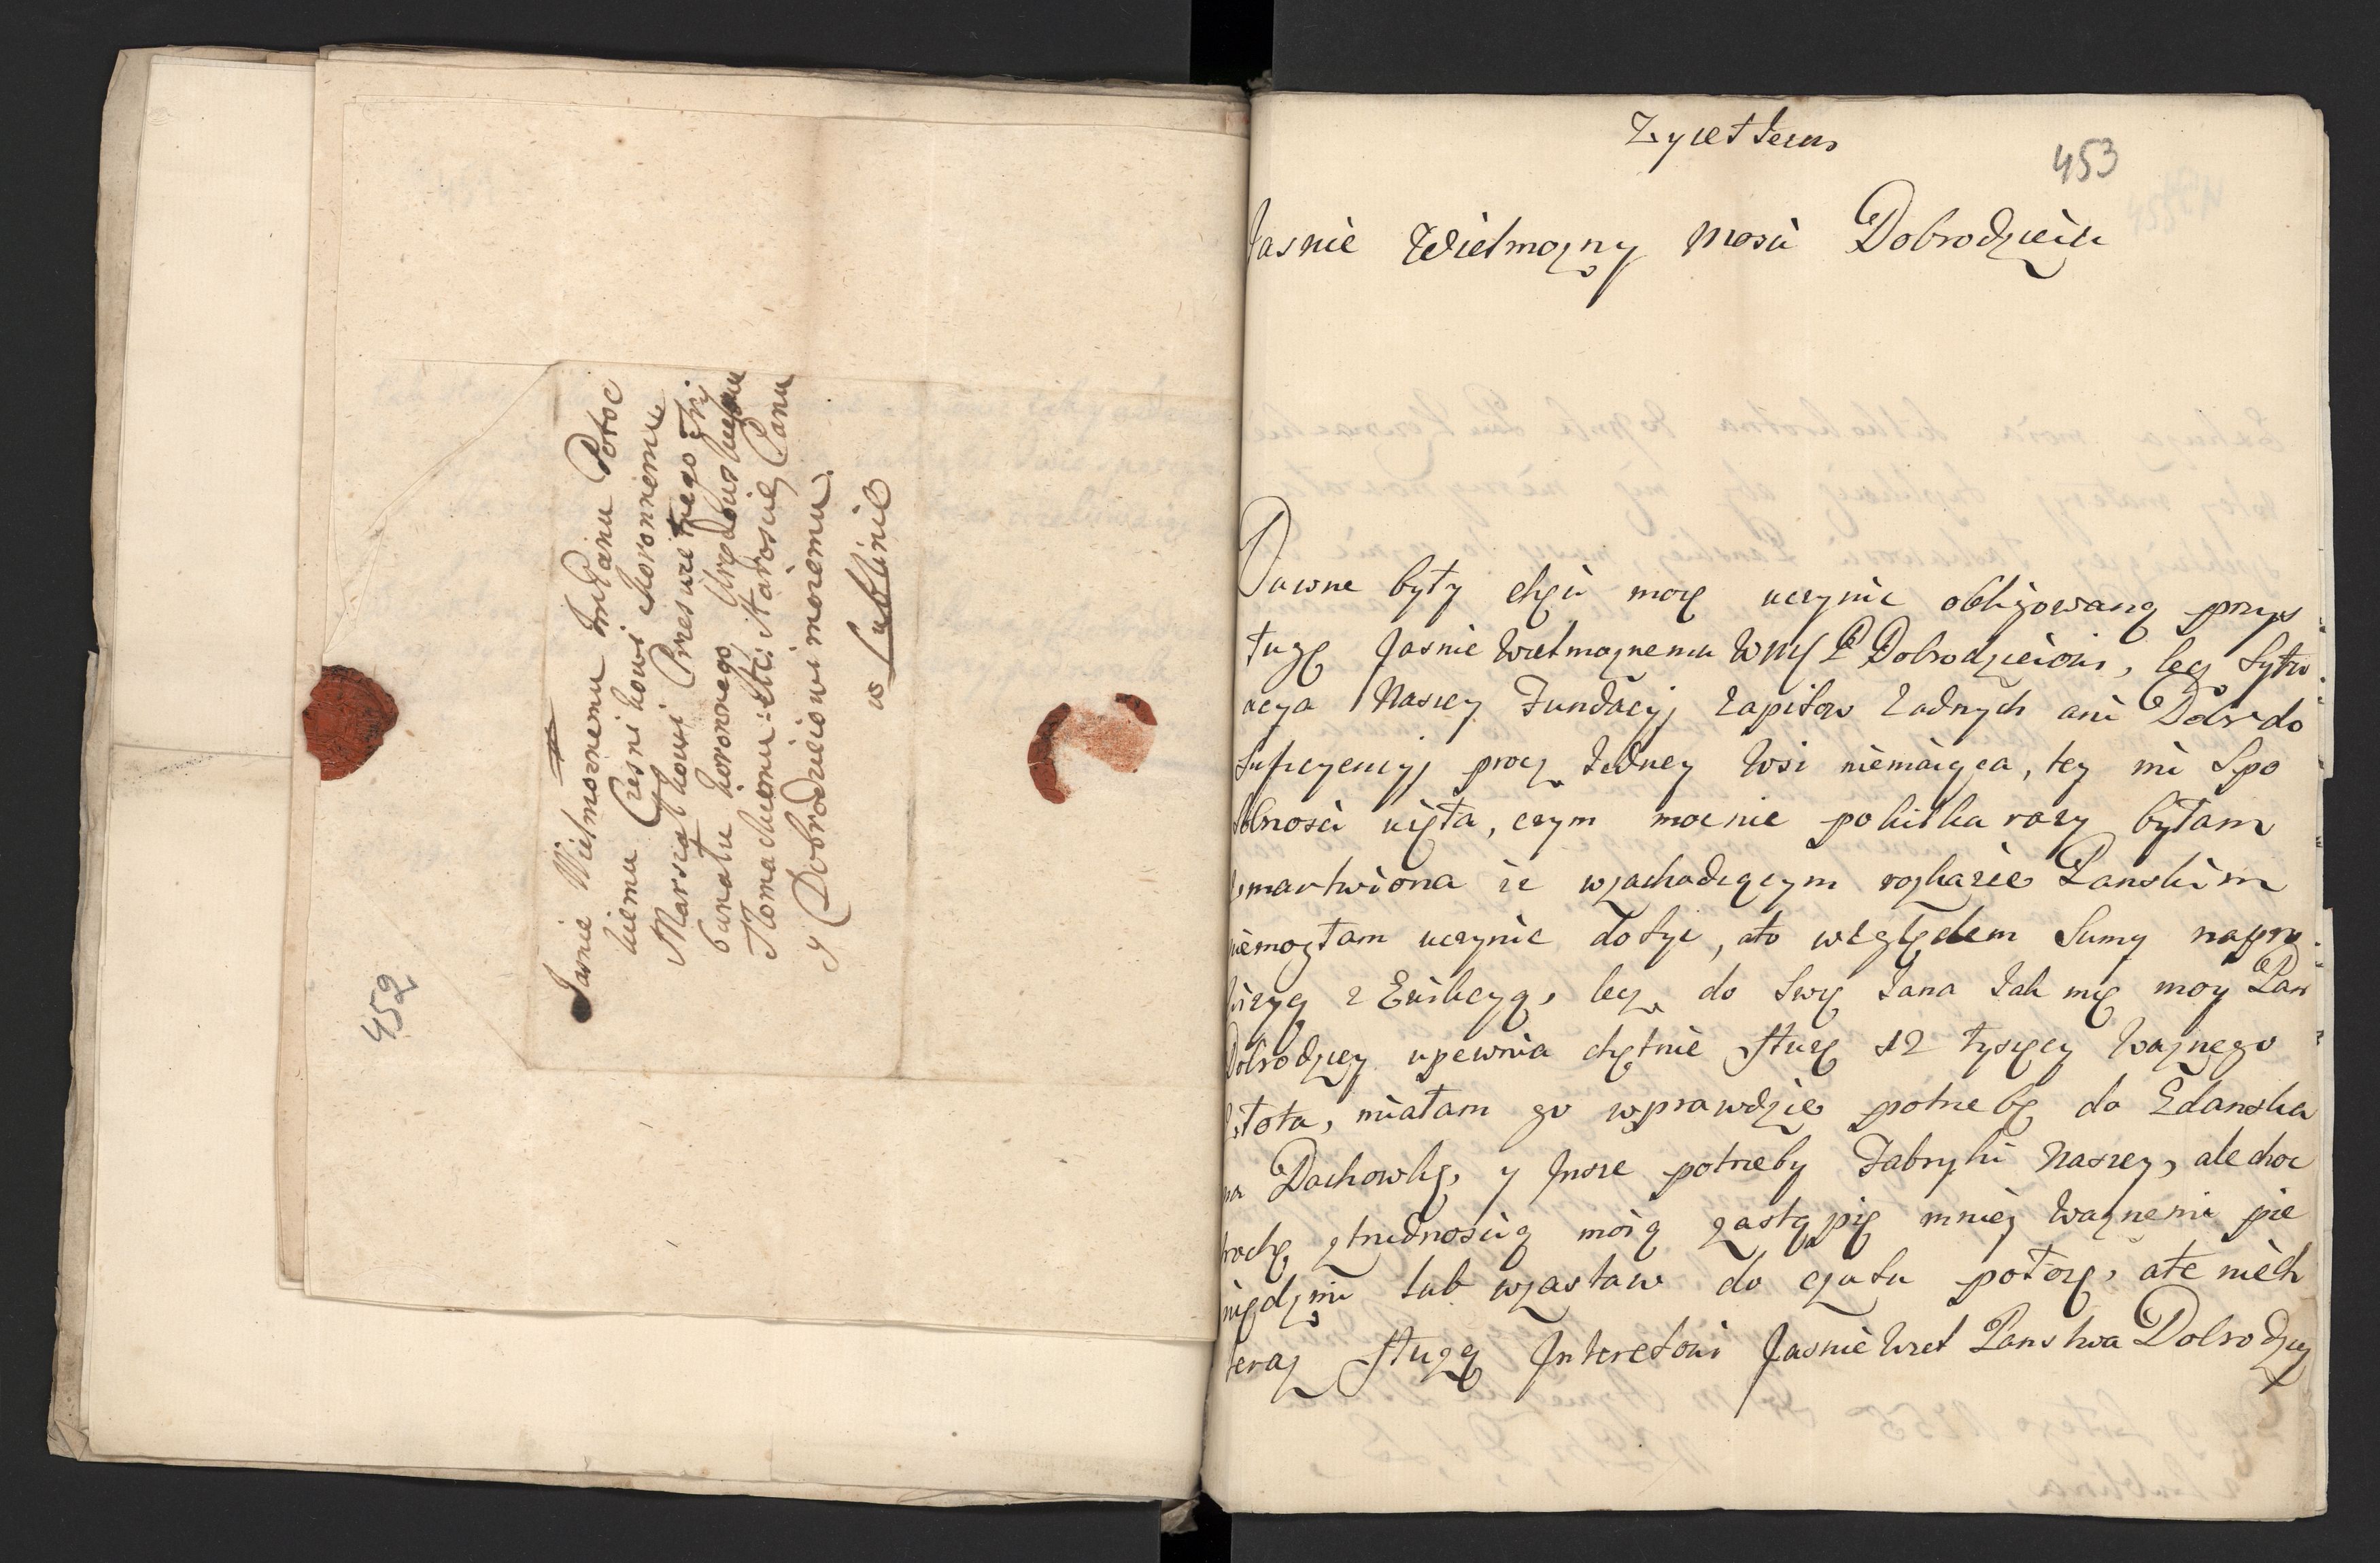 452
Jasnie Wielmoznemu Jm Panu Potoc
kiemu Czesnikowi Koronnemu
Marszałkowi Preswietnego Try
bunału koronnego
Tłomackiemu etc: Staroscie, Panu
y Dobrodzieiowi memu.
w Lublinie
453
Zyie Jezus
Jasnie Wielmozny Mosci Dobrodzieiu
Dawne były chęci moie uczynic obligowaną przys
ługę Jasnie Wielmoznemu WMC P Dobrodzieiowi, lecz Sytu
acya Naszey Fundacyj zapisow zadnych ani Dobr do
Supcyencyj procz Jedney Wsi niemaiąca, tey mi Spo
sobnosci uięła, czym mocnie pokilka razy byłam
zmartwiona ze wzachodzącym rozkazie Panskim
niemogłam uczynic dosyc, ato względem Sumy
lecz do Swię Jana Jak mię moy Pan
Dobrodziey upewnia chętnie służę 12 tysięcy waznego
złota, miałam go wprawdzie potrzebę do Gdanska
na Dachowkę, y Insze potrzeby Fabryki Naszey, ale choc
trochę ztrudnoscią moią zastąpię mniey waznemi pie
niędzmi lub wzastaw do czasu połozę, ale niech
teraz służę Interesowi Jasnie Wiel Panstwa Dobrodziey